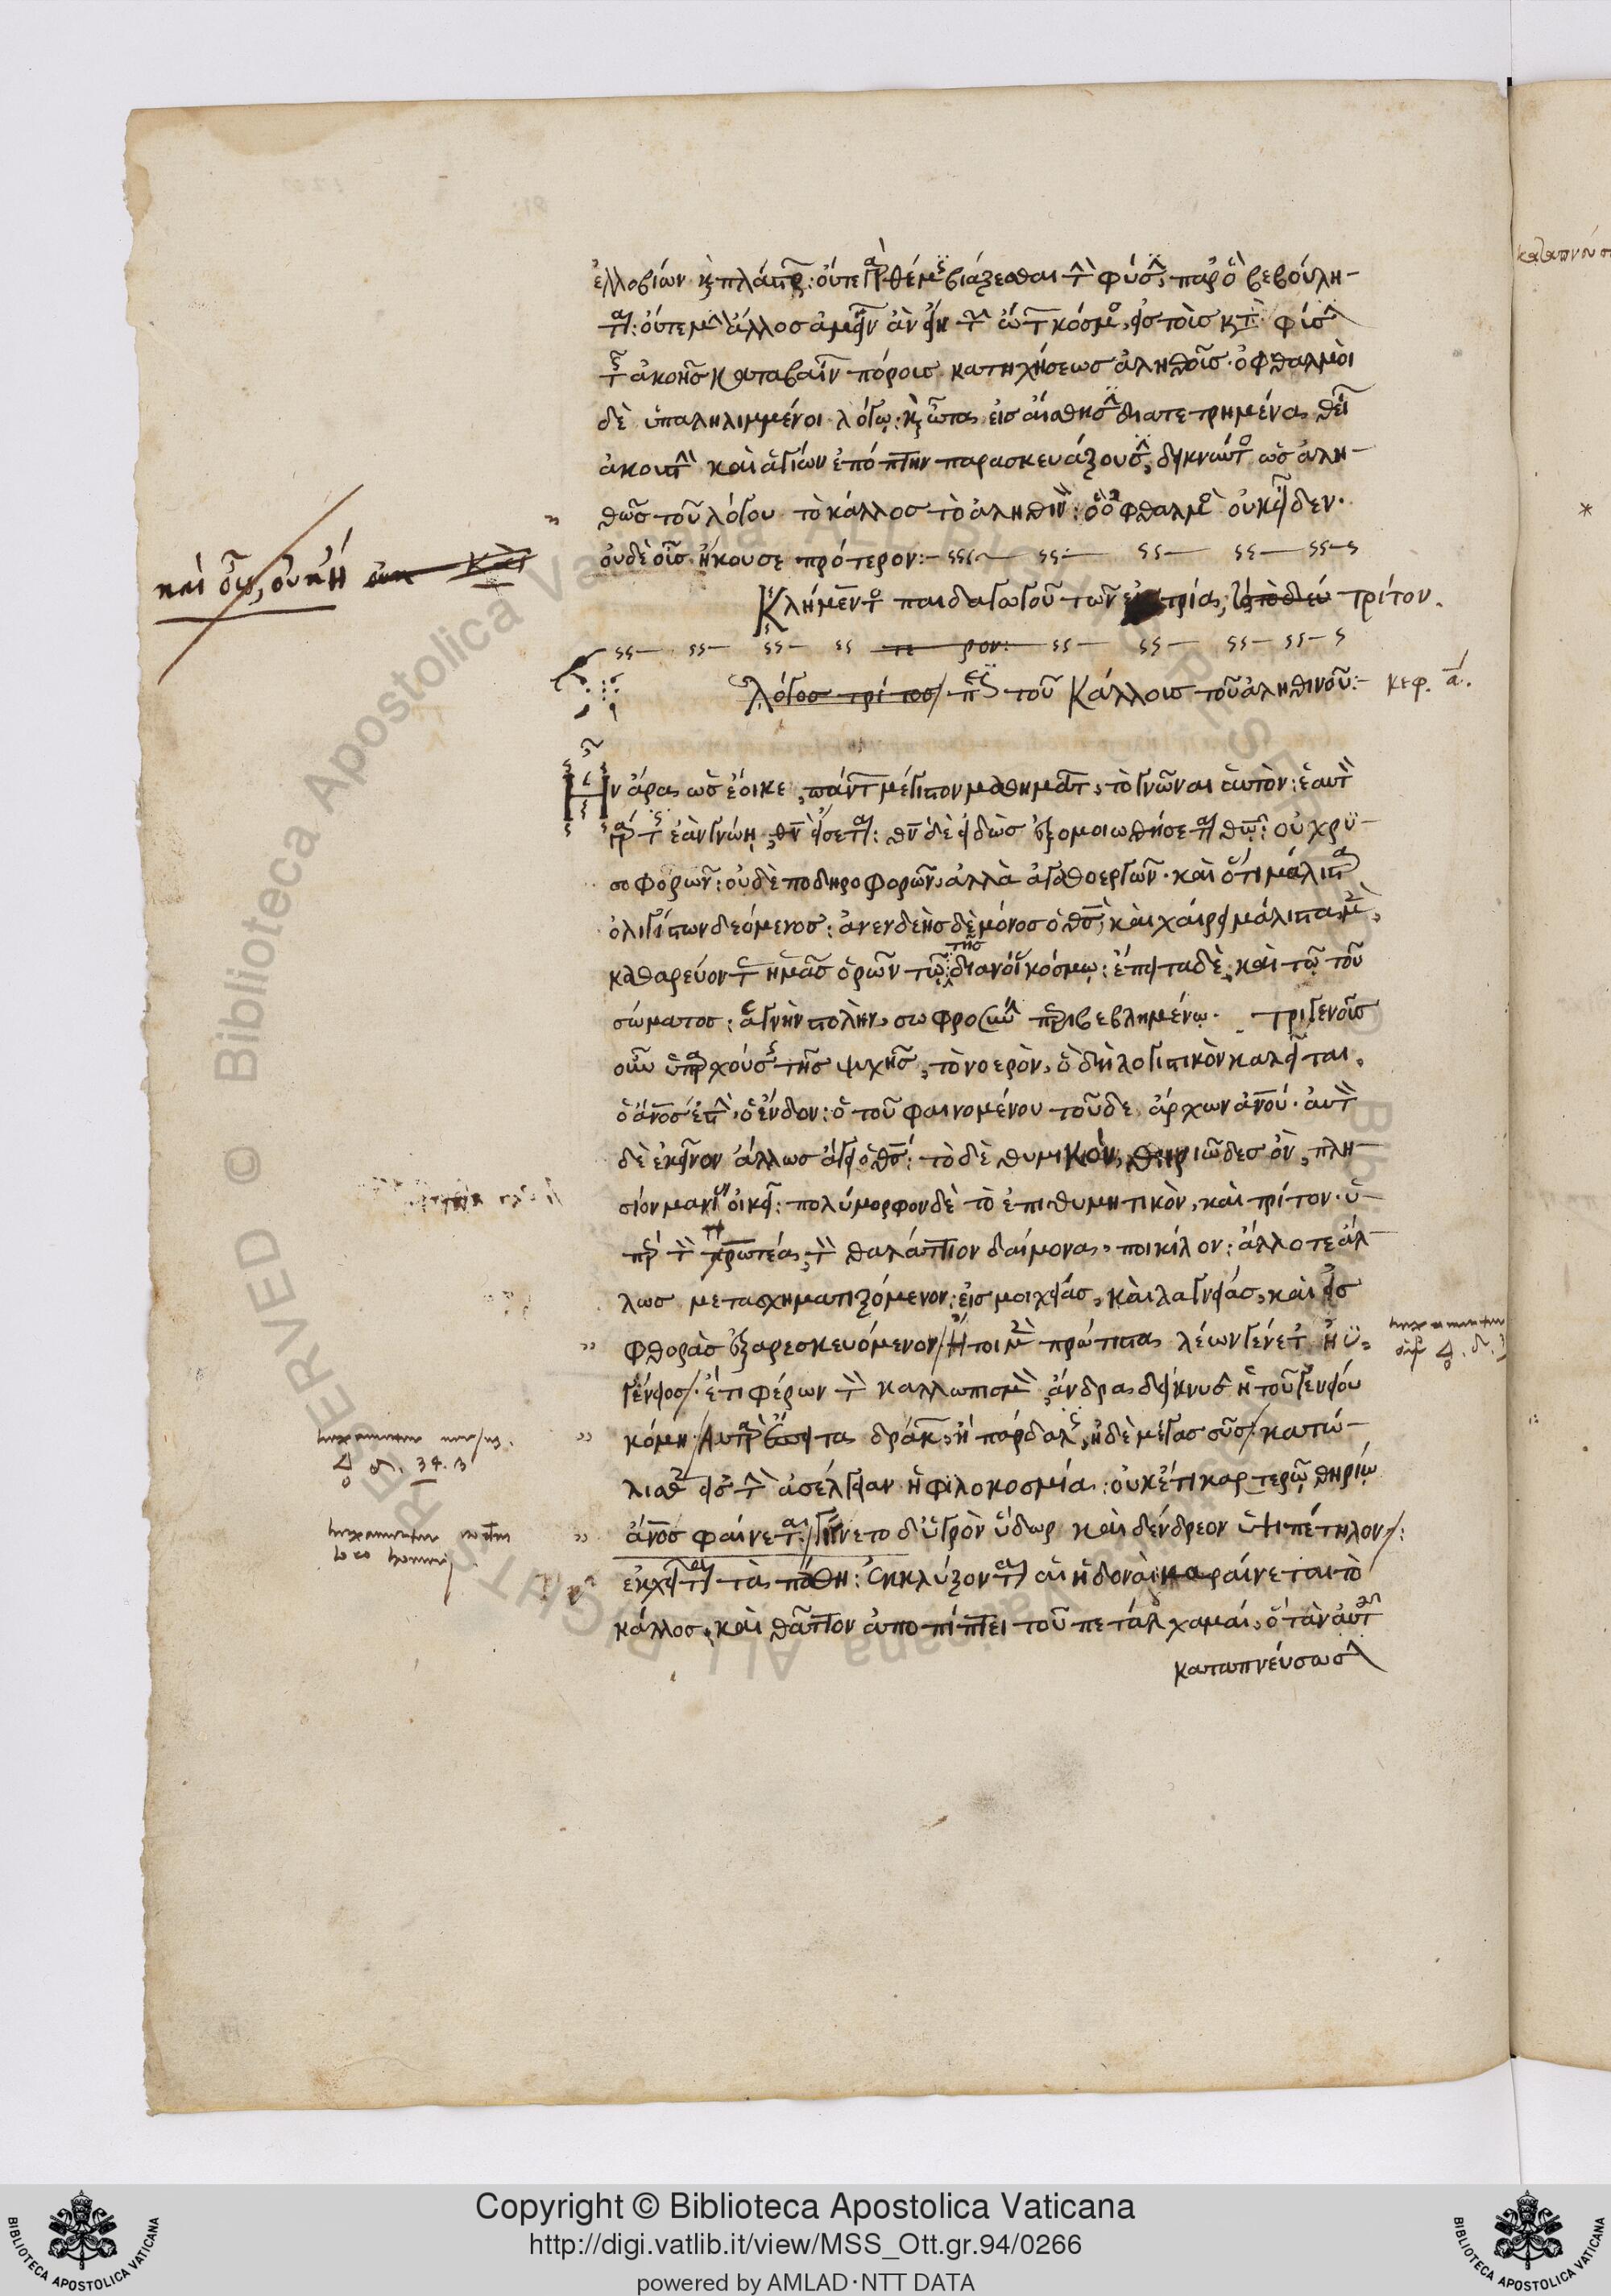 ἐλλοβίων καὶ πλάστρων: οὔτε γὰρ θέμις βιάζεσθαι τὴν φύσιν, παρ' ὃ βεβούλη-
ται: οὔτε μὴν ἄλλος ἀμείνων ἂν εἴη τῶν ὤτων κόσμος, εἰς τοὺς κατὰ φύσιν
τῆς ἀκοῆς καταβαίνων πόρους κατηχήσεως ἀληθοῦς. ὀφθαλμοὶ
δὲ ὑπαληλιμμένοι λόγῳ: καὶ ὦτα εἰς αἴσθησιν διατετρημένα, θείων
ἀκουστὴν καὶ ἁγίων ἐπόπτην παρασκευάζουσιν, δεικνύντος ὡς ἀλη-
θῶς τοῦ λόγου τὸ κάλλος τὸ ἀληθινὸν: ὃ ὀφθαλμὸς οὐκ εἶδεν.
οὐδὲ οὖς ἤκουσε πρότερον:-
καὶ οὖς, οὐκ ἤ
Κλήμεντος παιδαγωγοῦ τῶν εἰς τρία, τρίτον.
λόγος τρίτος περὶ τοῦ Κάλλους τοῦ ἀληθινοῦ:- κεφ. α.
Ην ἄρα, ὡς ἔοικε, πάντων μέγιστον μαθημάτων, τὸ γνῶναι αὑτὸν: ἑαυτὸν
γάρ τις ἐὰν γνώῃ, θν εἴσεται: θν δὲ εἰδὼς ἐξομοιωθήσεται θω: οὐ χρυ-
σοφορῶν: οὐδὲ ποδηροφορῶν, ἀλλὰ ἀγαθοεργῶν. καὶ ὅτι μάλιστα
ὀλιγίστων δεόμενος: ἀνενδεὴς δὲ μόνος ὁ θς, καὶ χαίρει μάλιστα μὲν,
καθαρεύοντας ἡμᾶς ὁρῶν τῷ τῆς διανοίας κόσμῳ: ἔπειτα δὲ, καὶ τῷ τοῦ
σώματος: ἁγνὴν στολὴν, σωφροσύνην περιβεβλημένῳ. Τριγενοῦς
οὖν ὑπαρχούσης τῆς ψυχῆς, τὸ νοερὸν, ὃ δὴ λογιστικὸν καλεῖται,
ὁ ἄνος ἐστὶν, ὁ ἔνδον: ὁ τοῦ φαινομένου τοῦδε ἄρχων ἀνου. αὐτὸν
δὲ ἐκεῖνον ἄλλως ἄγει ὁ θς: τὸ δὲ θυμικόν, θηριῶδες ὂν, πλη-
σίον μανίας οἰκεῖ: πολύμορφον δὲ τὸ ἐπιθυμητικὸν, καὶ τρίτον. ὑ-
πὲρ τὸν πρωτέα, τὸν θαλάττιον δαίμονα, ποικίλον: ἄλλοτε ἄλ-
λως μετασχηματιζόμενον: εἰς μοιχείας, καὶ λαγνείας, καὶ εἰς
φθορὰς ἐξαρεσκευόμενον. Ἤτοι μὲν πρώτιστα λέων γένετ' ἠϋ-
γένειος. ἔτι φέρων τὸν καλλωπισμὸν, ἄνδρα δείκνυσιν ἡ τοῦ γενείου
κόμη. Αὐτὰρ ἔπειτα δράκων, ἢ πάρδαλις, ἠδὲ μέγας σῦς. κατώ-
λισθεν εἰς τὴν ἀσέλγειαν ἡ φιλοκοσμία: οὐκ ἔτι καρτερῷ θηρίῳ
ἄνος φαίνεται. Γίνετο δ' ὑγρὸν ὕδωρ καὶ δένδρεον ὑψιπέτηλον:
ἐκχεῖται τὰ πάθη: ἐκκλύζονται αἱ ἡδοναὶ, μαραίνεται τὸ
κάλλος, καὶ θᾶττον ἀποπίπτει τοῦ πετάλου χαμαί, ὅταν αὐτοῦ
καταπνεύσωσιν
Copyright © Biblioteca Apostolica Vaticana
http://digi.vatlib.it/view/MSS_Ott.gr.94/0266
powered by AMLAD·NTT DATA